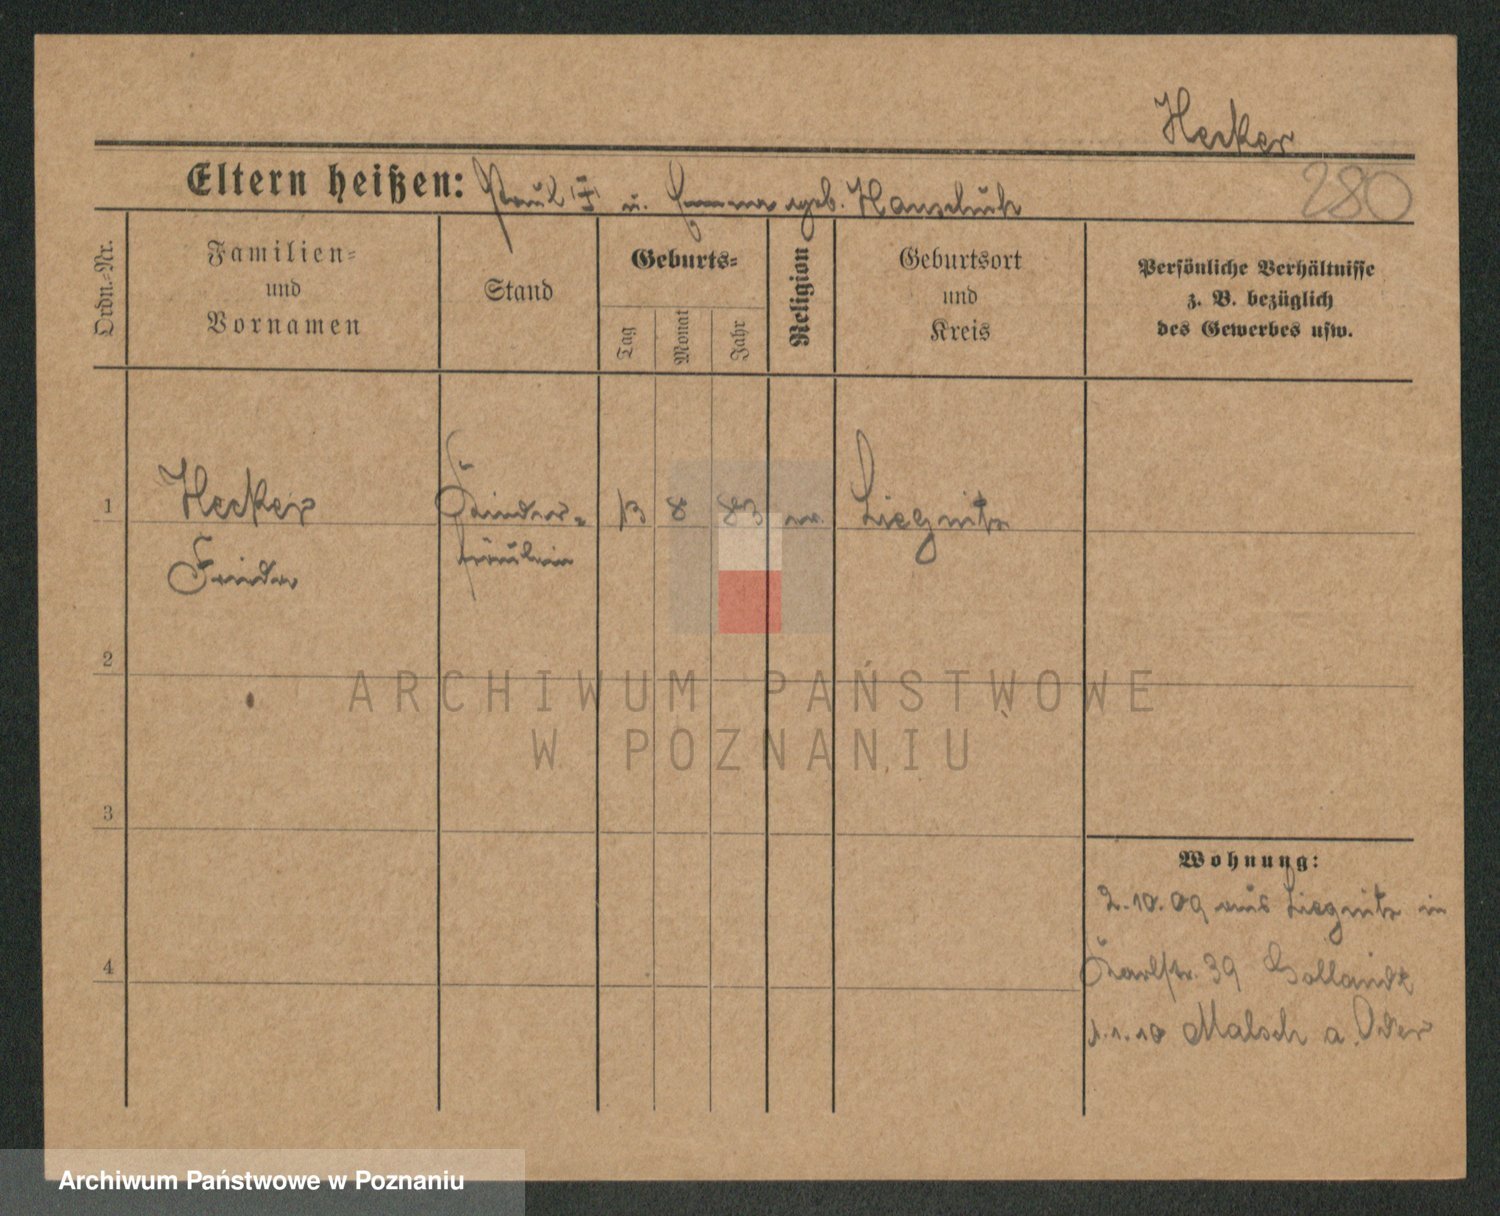 Hecker
280
Eltern heißen: Paul u. Emma geb. Hanschuh
Ordn.-Nr.
Familien-
und
Vornamen
Stand
Geburts-
Tag
Monat
Jahr
Religion
Geburtsort
und
Kreis
Persönliche Verhältnisse
z. B. bezüglich
des Gewerbes usw.
1
Hecker
Frieda
Kinder-
fräulein
13
8
83
ev.
Liegnitz
2
ARCHIWUM PAŃSTWOWE
W POZNANIU
3
Wohnung:
2.10.09 aus Liegnitz in
4
Karlstr. 39
1.1.10 Malsch a. Oder
Archiwum Państwowe w Poznaniu